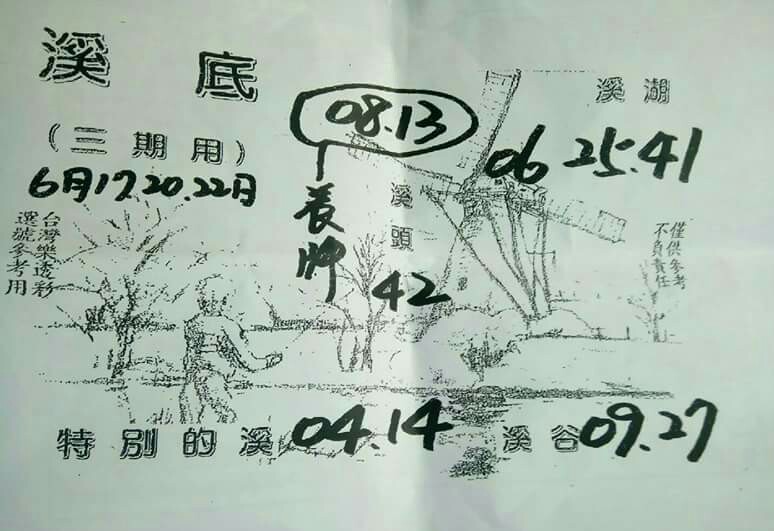 溪底
(三期用)
6月17.20.22日
台灣樂透彩
選號參考用
08.13
長牌
溪頭
42
溪湖
06 25.41
僅供參考
不負責任
特別的溪 04.14
溪谷 09.27